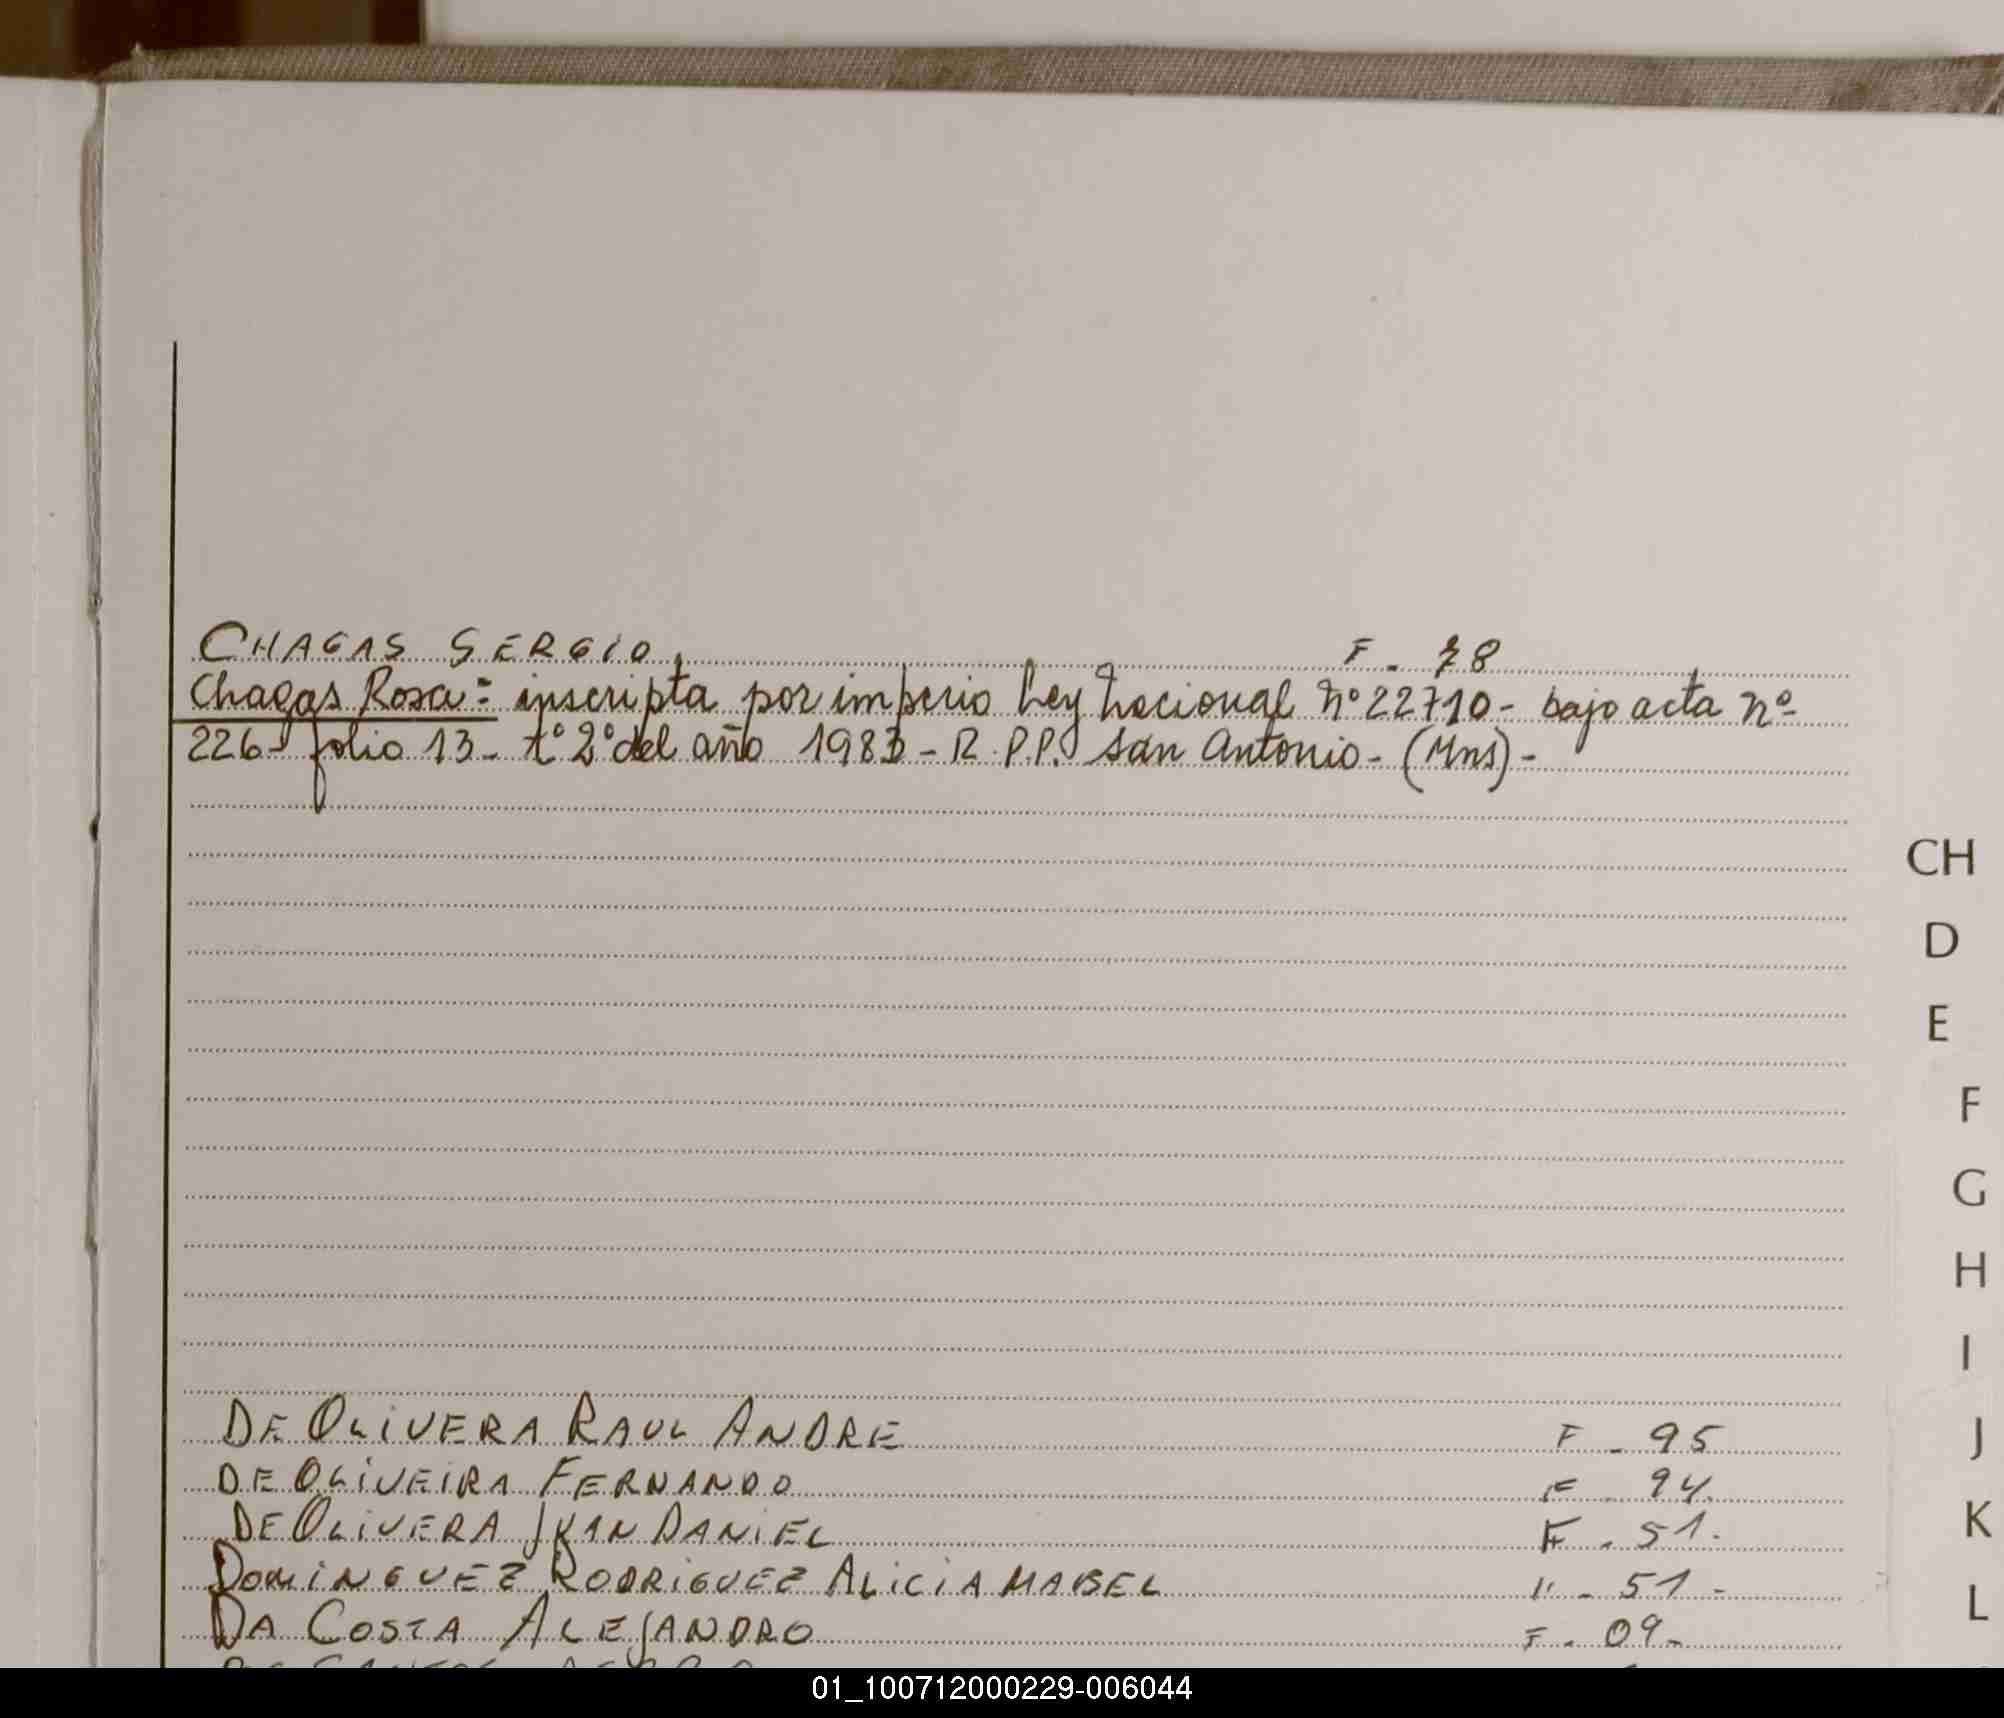 CHAGAS SERGIO F. 78
Chagas Rosa: inscripta por imperio Ley Nacional Nº 22710- bajo acta nº
226- folio 13- tº 2º del año 1983- R.P.P. San Antonio- (Mns)-
CH
D
E
F
G
H
I
DE OLIVERA RAUL ANDRE F. 95
J
DE OLIVEIRA FERNANDO F. 94.
DE OLIVERA JUAN DANIEL F. 51.
K
DOMINGUEZ RODRIGUEZ ALICIA MABEL " - 51 -
L
DA COSTA ALEJANDRO F. 09-
01_100712000229-006044